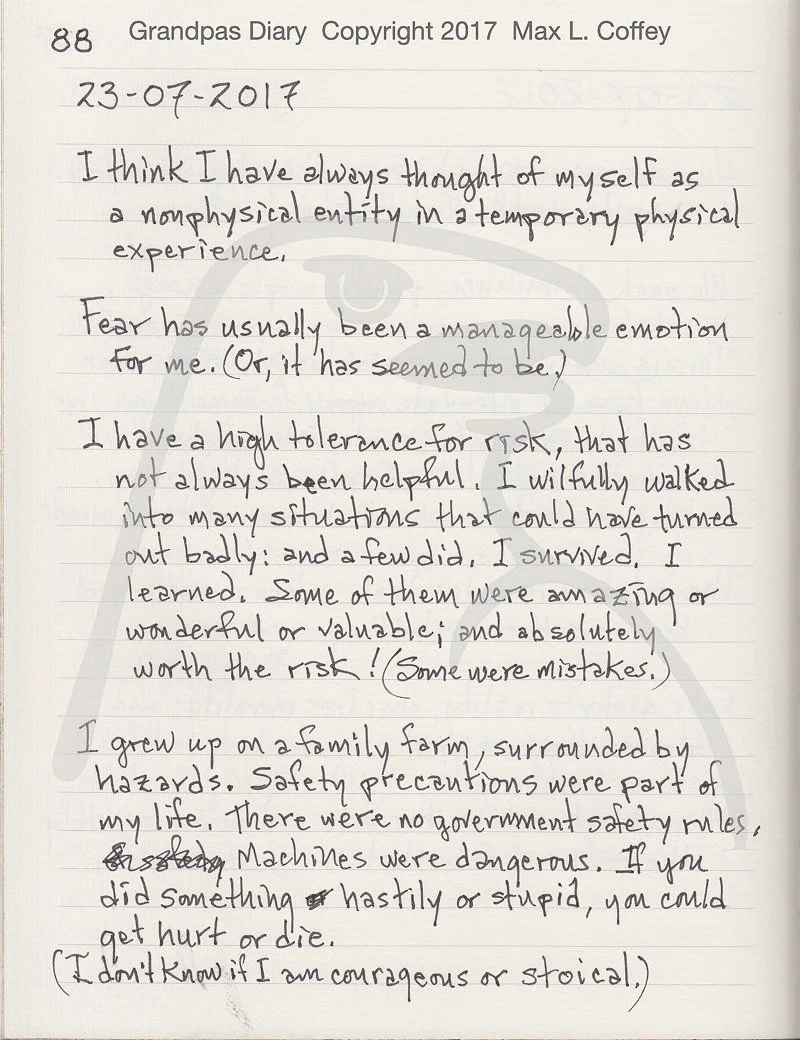 88 Grandpas Diary Copyright 2017 Max L. Coffey
23-07-2017
I think I have always thought of myself as
a nonphysical entity in a temporary physical
experience.
Fear has usually been a manageable emotion
for me. (Or, it has seemed to be.)
I have a high tolerance for risk, that has
not always been helpful. I wilfully walked
into many situations that could have turned
out badly: and a few did. I survived. I
learned. Some of them were amazing or
wonderful or valuable; and absolutely
worth the risk! (Some were mistakes.)
I grew up on a family farm, surrounded by
hazards. Safety precautions were part of
my life. There were no government safety rules.
Machines were dangerous. If you
did something hastily or stupid, you could
get hurt or die.
(I don't know if I am courageous or stoical.)